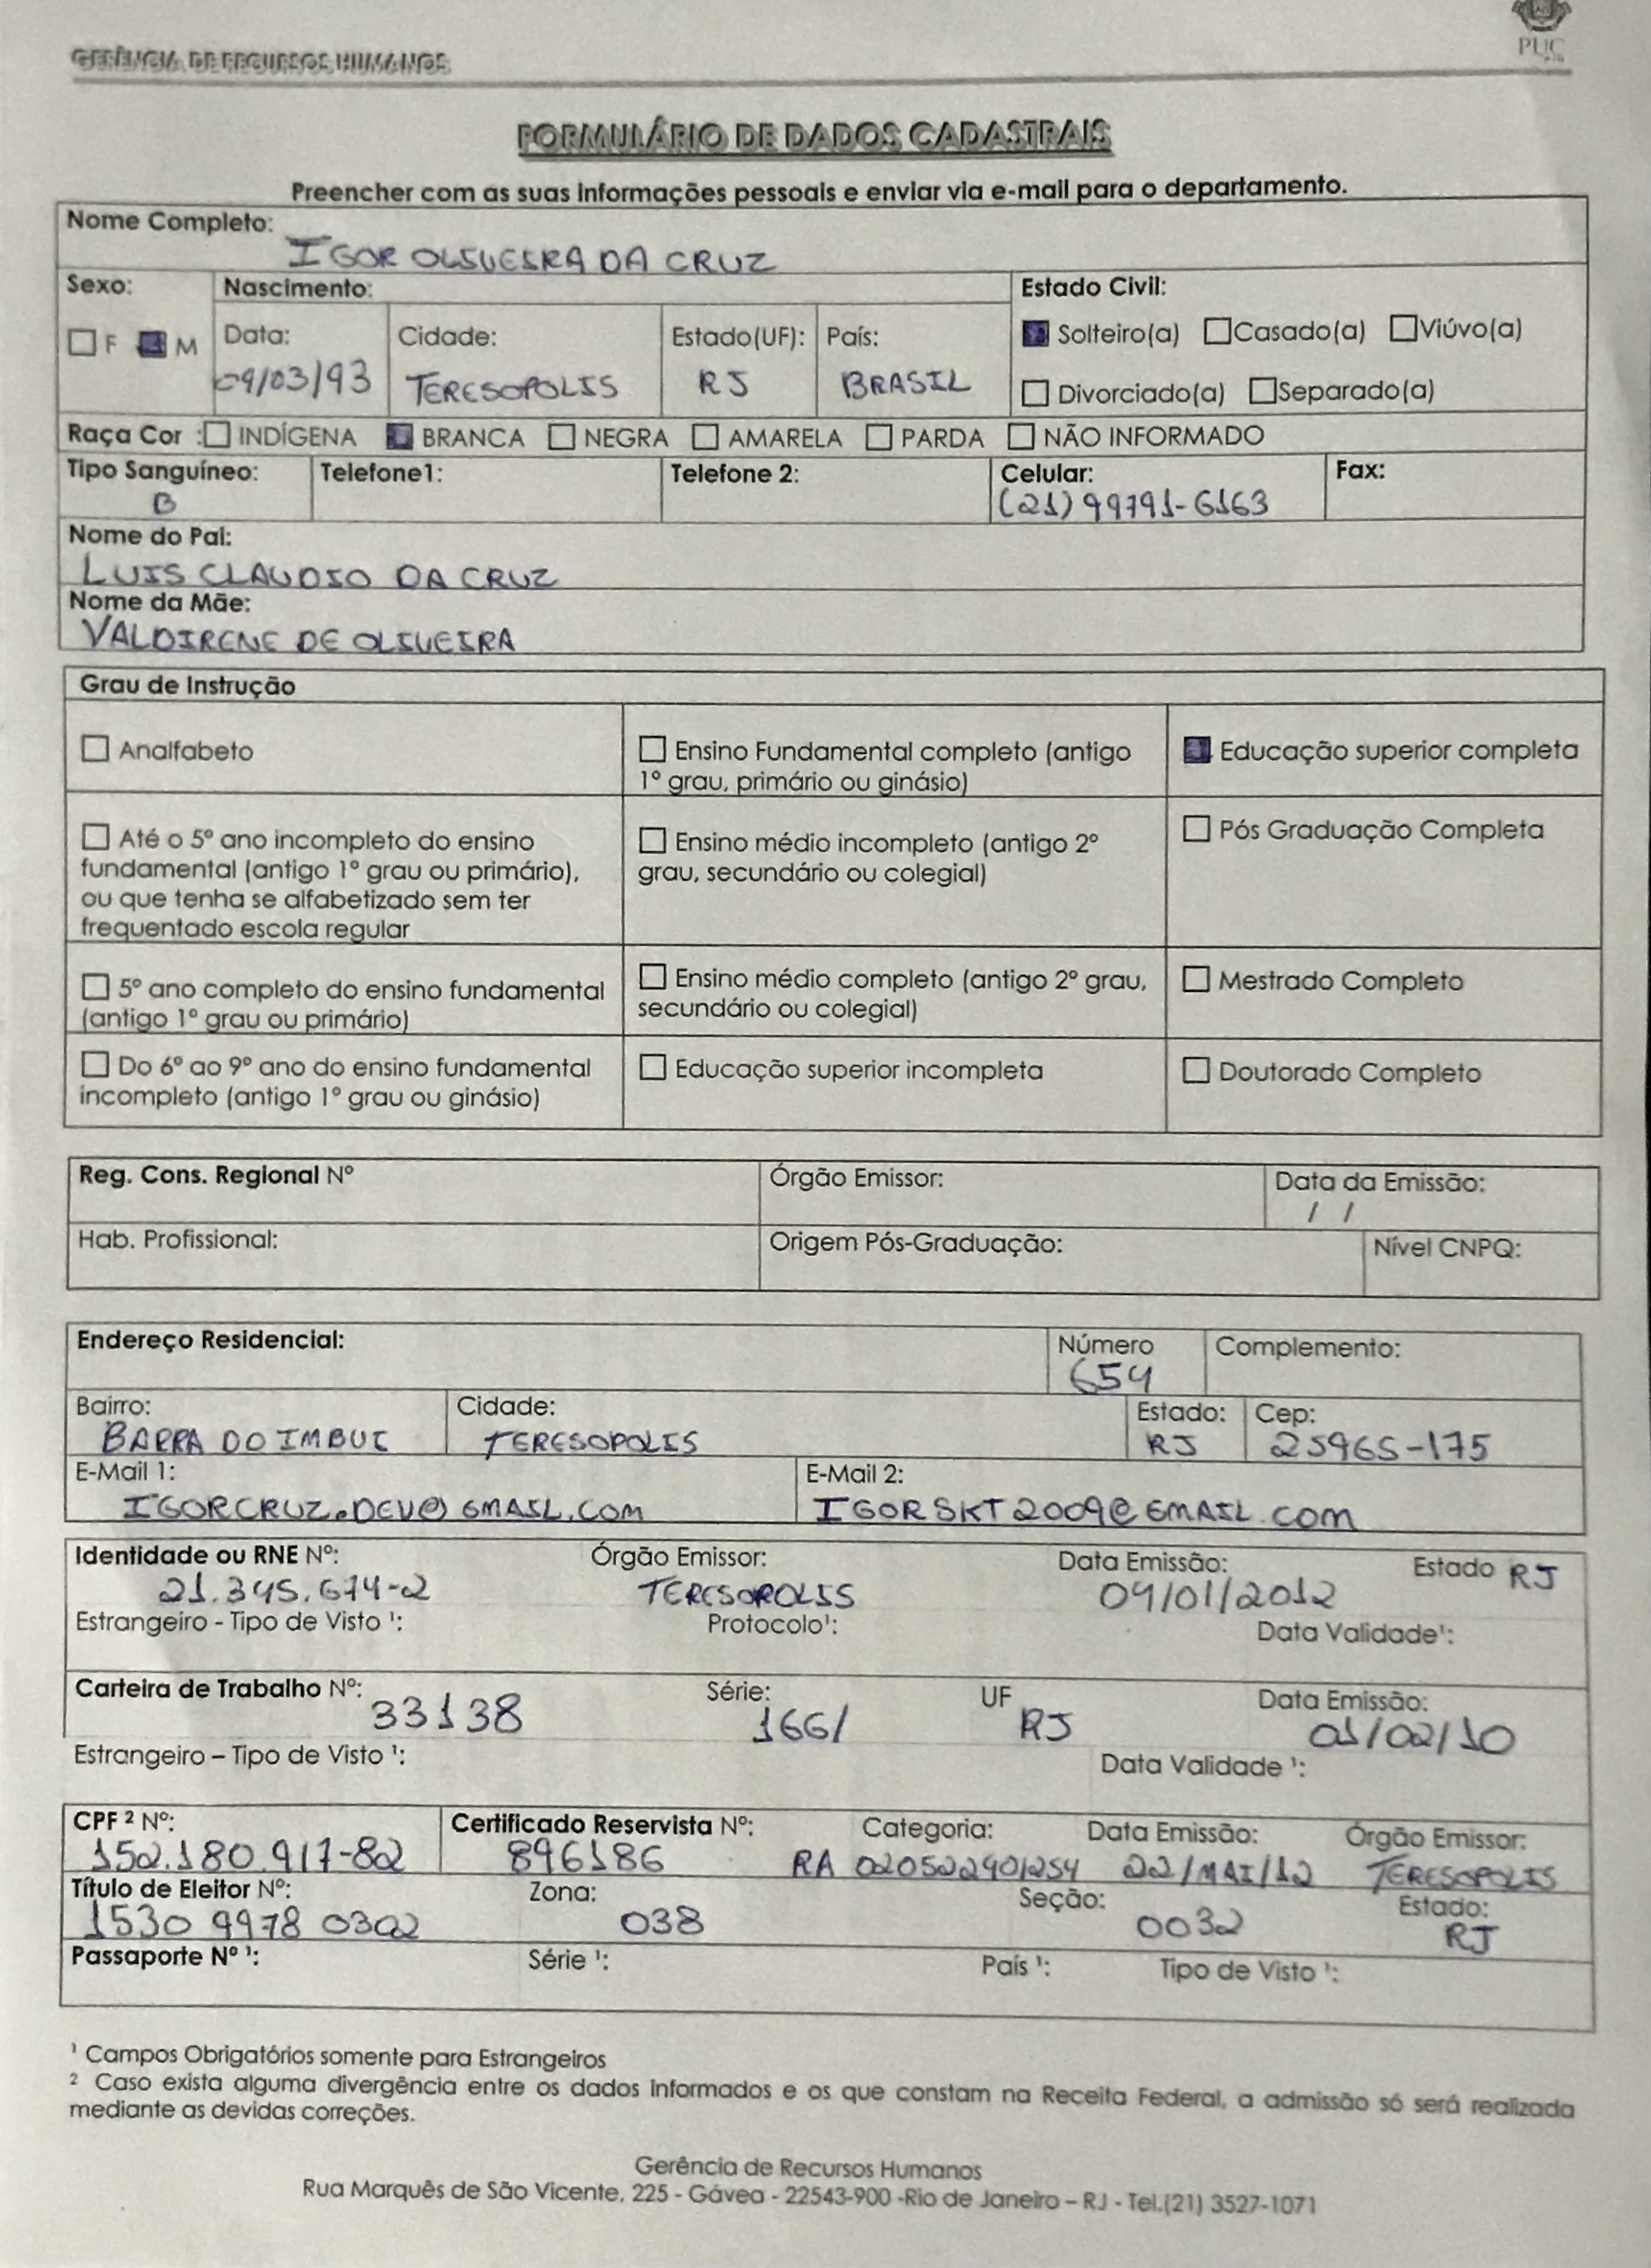 GERÊNCIA DE RECURSOS HUMANOS
PUC
RIO
FORMULÁRIO DE DADOS CADASTRAIS
Preencher com as suas informações pessoais e enviar via e-mail para o departamento.
Nome Completo:
IGOR OLIVEIRA DA CRUZ
Sexo: Nascimento: Estado Civil:
F M Data: Cidade: Estado(UF): País: Solteiro(a) Casado(a) Viúvo(a)
09/03/93 TERESOPOLIS RJ BRASIL Divorciado(a) Separado(a)
Raça Cor : INDÍGENA BRANCA NEGRA AMARELA PARDA NÃO INFORMADO
Tipo Sanguíneo: Telefone1: Telefone 2: Celular: Fax:
B (21) 99791-6163
Nome do Pai:
LUIS CLAUDIO DA CRUZ
Nome da Mãe:
VALDIRENE DE OLIVEIRA
Grau de Instrução
Analfabeto
Ensino Fundamental completo (antigo
1º grau, primário ou ginásio)
Educação superior completa
Até o 5º ano incompleto do ensino
fundamental (antigo 1º grau ou primário),
ou que tenha se alfabetizado sem ter
frequentado escola regular
Ensino médio incompleto (antigo 2º
grau, secundário ou colegial)
Pós Graduação Completa
5º ano completo do ensino fundamental
(antigo 1º grau ou primário)
Ensino médio completo (antigo 2º grau,
secundário ou colegial)
Mestrado Completo
Do 6º ao 9º ano do ensino fundamental
incompleto (antigo 1º grau ou ginásio)
Educação superior incompleta
Doutorado Completo
Reg. Cons. Regional Nº Órgão Emissor: Data da Emissão:
/ /
Hab. Profissional: Origem Pós-Graduação: Nível CNPQ:
Endereço Residencial: Número Complemento:
654
Bairro: Cidade: Estado: Cep:
BARRA DO IMBUI TERESOPOLIS RJ 25965-175
E-Mail 1: E-Mail 2:
IGORCRUZ.DEV@GMAIL.COM IGORSKT2009@GMAIL.COM
Identidade ou RNE Nº: Órgão Emissor: Data Emissão: Estado RJ
21.345.674-2 TERESOPOLIS 09/01/2012
Estrangeiro - Tipo de Visto ¹: Protocolo¹: Data Validade¹:
Carteira de Trabalho Nº: Série: UF Data Emissão:
33138 166/ RJ 01/02/10
Estrangeiro – Tipo de Visto ¹: Data Validade ¹:
CPF ² Nº: Certificado Reservista Nº: Categoria: Data Emissão: Órgão Emissor:
152.180.917-82 896186 RA 020522901254 22/MAI/12 TERESOPOLIS
Título de Eleitor Nº: Zona: Seção: Estado:
1530 9978 0302 038 0032 RJ
Passaporte Nº ¹: Série ¹: País ¹: Tipo de Visto ¹:
¹ Campos Obrigatórios somente para Estrangeiros
² Caso exista alguma divergência entre os dados informados e os que constam na Receita Federal, a admissão só será realizada
mediante as devidas correções.
Gerência de Recursos Humanos
Rua Marquês de São Vicente, 225 - Gávea - 22543-900 -Rio de Janeiro – RJ - Tel.(21) 3527-1071